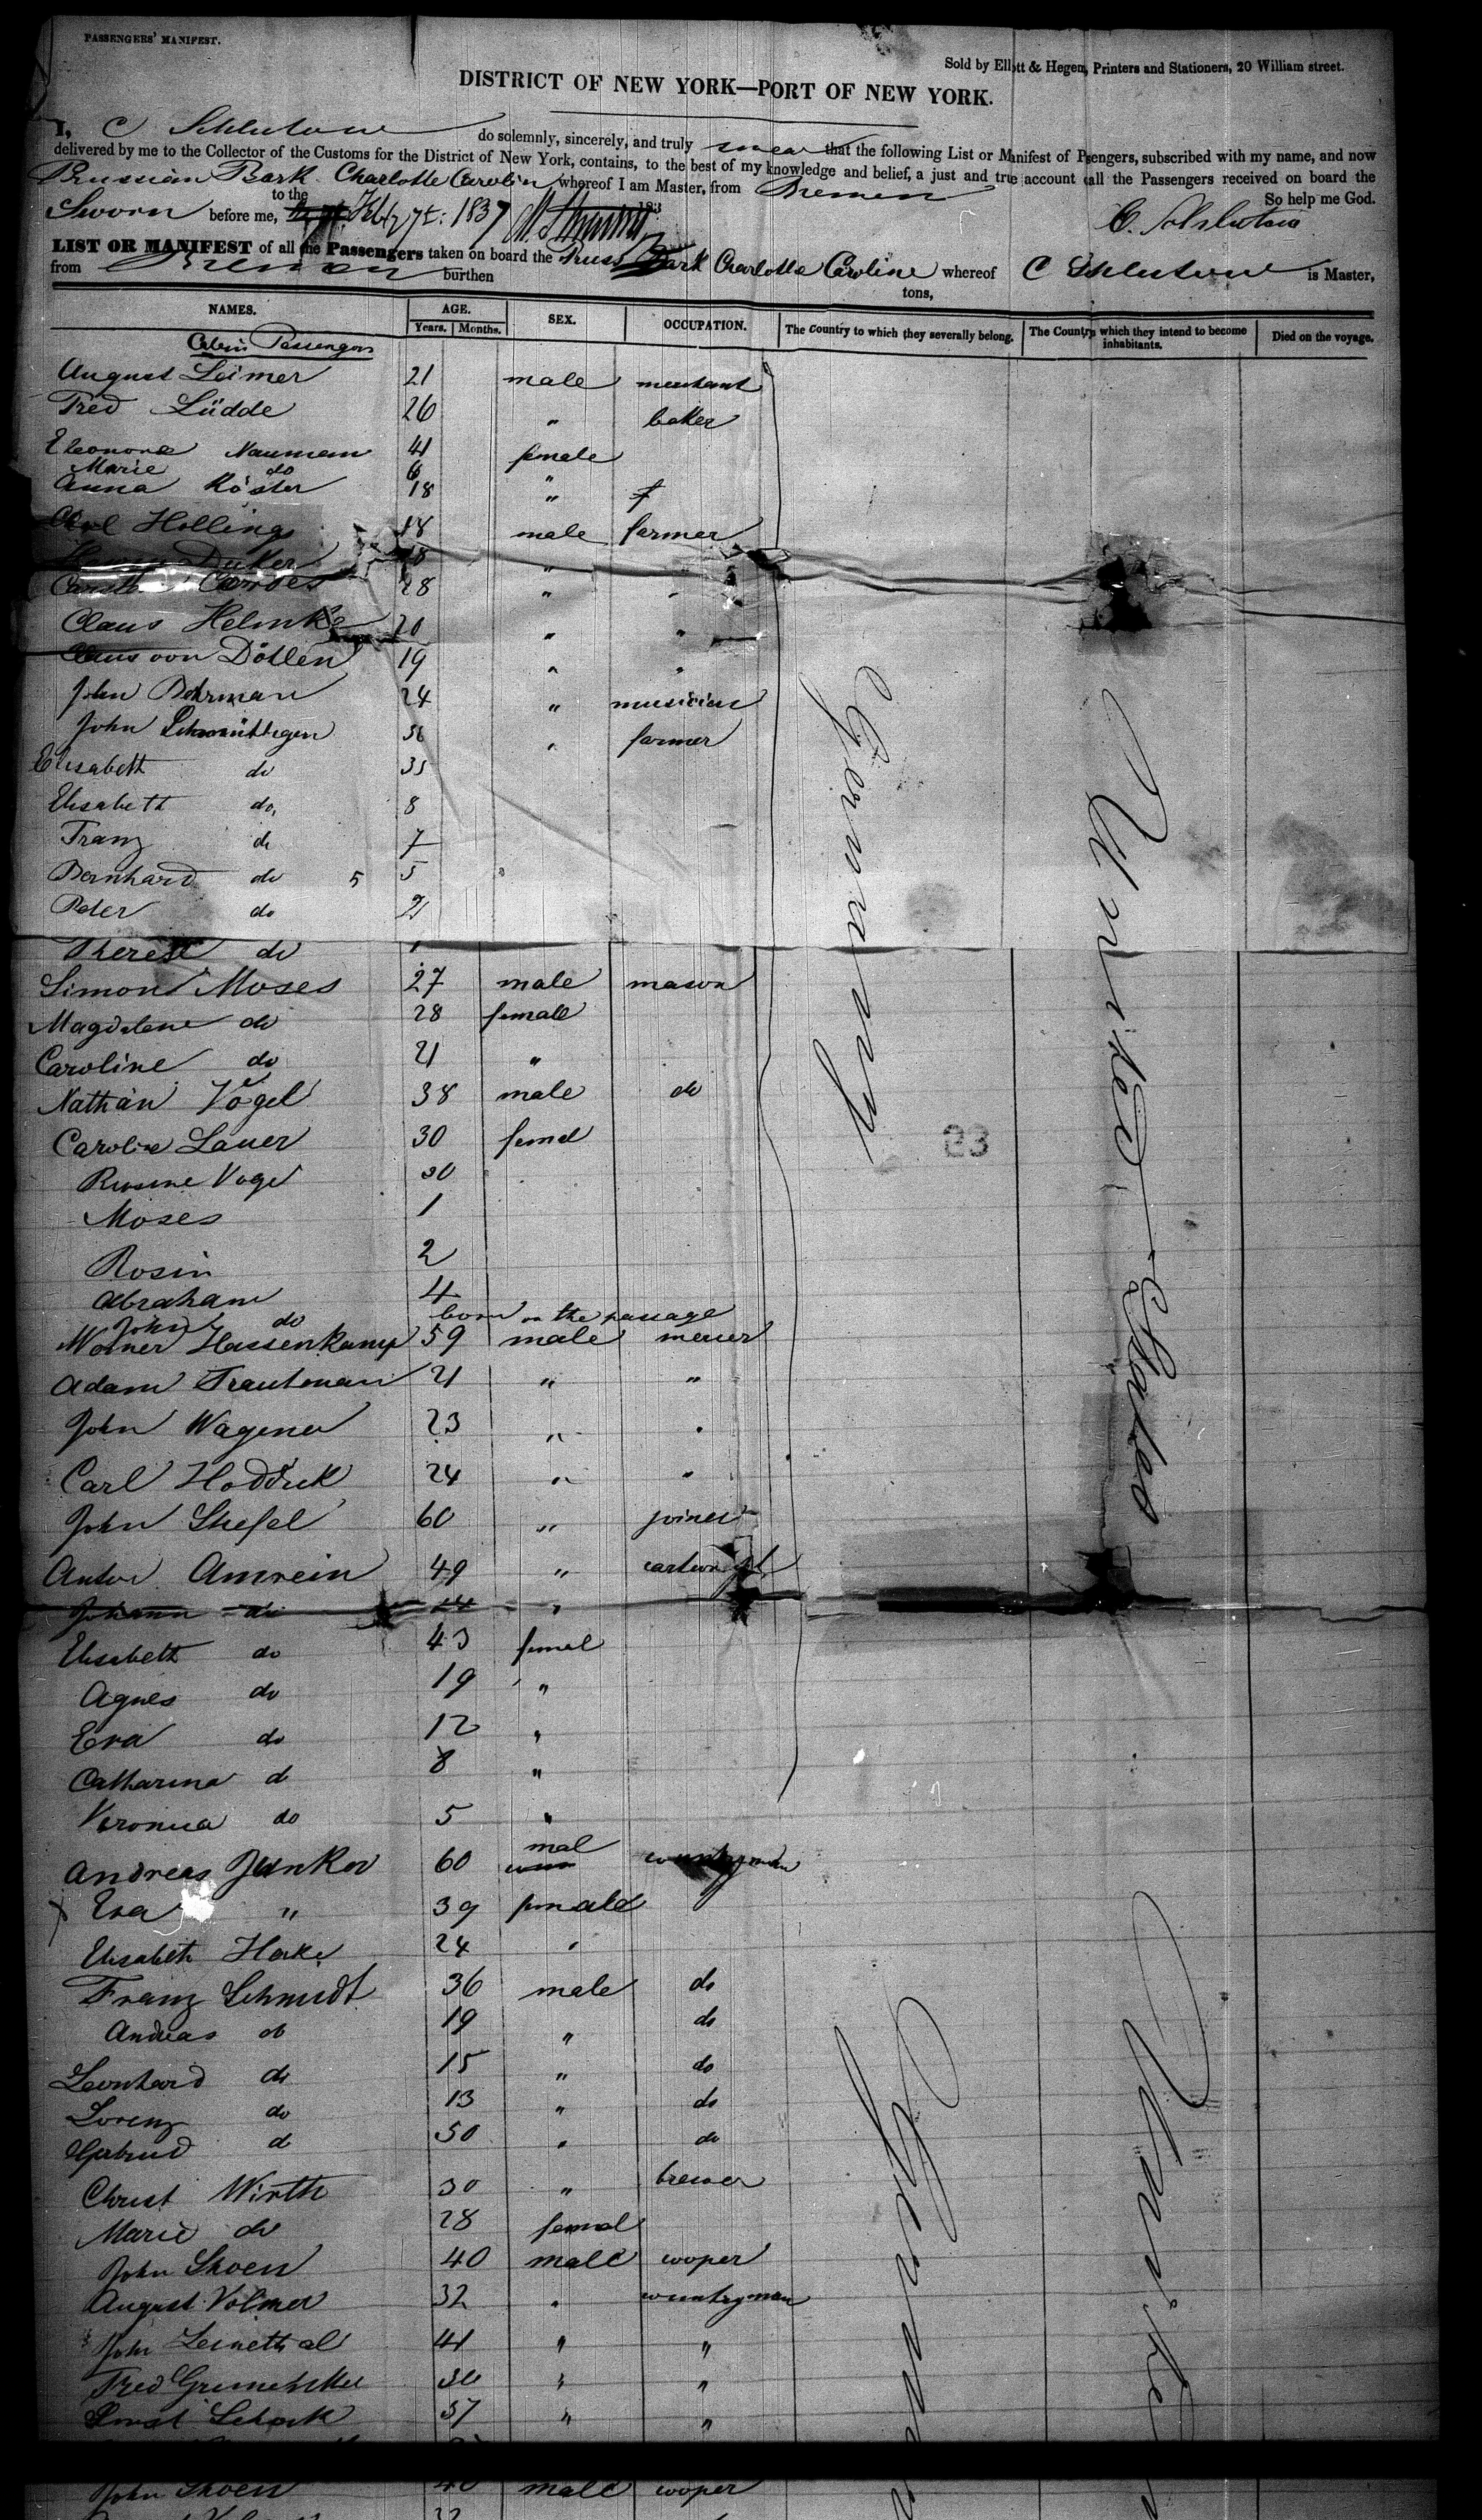 PASSENGERS' MANIFEST.
Sold by Elliott & Hegen, Printers and Stationers, 20 William street.
DISTRICT OF NEW YORK—PORT OF NEW YORK.
I, C do solemnly, sincerely, and truly swear that the following List or Manifest of Psengers, subscribed with my name, and now
delivered by me to the Collector of the Customs for the District of New York, contains, to the best of my knowledge and belief, a just and true account all the Passengers received on board the
Prussian Bark Charlotte Carolin whereof I am Master, from Bremen
to the So help me God.
Sworn before me, 7t: 1837 183 C.
LIST OR MANIFEST of all the Passengers taken on board the Pruss Bark Charlotte Caroline whereof C is Master,
from Bremen burthen tons,
NAMES. AGE. SEX. OCCUPATION. The Country to which they severally belong. The Country which they intend to become inhabitants. Died on the voyage.
Years. Months.
Cabin Passengers
August Leimer 21 male merchant
Fred Lüdde 26 " baker
Eleonore Naumann 41 female
Marie do 6 "
Anna Köster 18 "
Carl Hollings 18 male farmer
Duker 18 "
Cordes 28 " "
Claus Helmke 20 " "
Claus von Döllen 19 " "
John Bohrman 24 " musician
John 36 " farmer
Elisabeth do 35
Elisabeth do, 8
Franz do 7
Bernhard do 5 5
Peter do 2
Therese do
Simon Moses 27 male mason
Magdalene do 28 female
Caroline do 21 "
Nathan Vogel 38 male do
Caroline Lauer 30 femal
Rosine Vogel 30
Moses 1
Rosin 2
Abraham 4
John do born on the passage
Werner Hassenkamp 59 male mercer
Adam Trautman 21 " "
John Wagener 23 " "
Carl 24 " "
John Stiefel 60 " joiner
Anton Amrein 49 " cartwright
Johann do 14 "
Elisabeth do 43 femal
Agnes do 19 "
Eva do 12 "
Catharina do 8 "
Veronica do 5 "
Andreas Junker 60 mal countryman
Eva " 39 female
Elisabeth Hake 24 "
Franz Schmidt 36 male do
Andreas do 19 " do
Leonhard do 15 " do
Lorenz do 13 " do
Gertrud do 50 " do
Christ Wirth 30 " brewer
Marie do 28 femal
John Shoen 40 male cooper
August Volmer 32 " countryman
John Leinethal 41 " "
Fred 36 " "
Ernst Schork 37 " "
Germany
United States
23
John Shoen 40 male cooper